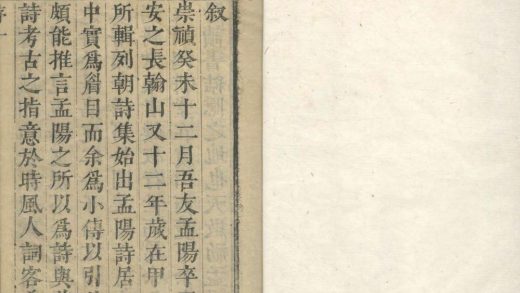 叙
崇禎癸未十二月吾友孟陽卒
安之長翰山又十二年歲在甲
所輯列朝詩集始出孟陽詩居
中實為眉目而余為小傳以引
頗能推言孟陽之所以為詩與
詩考古之指意於時風人詞客
序一